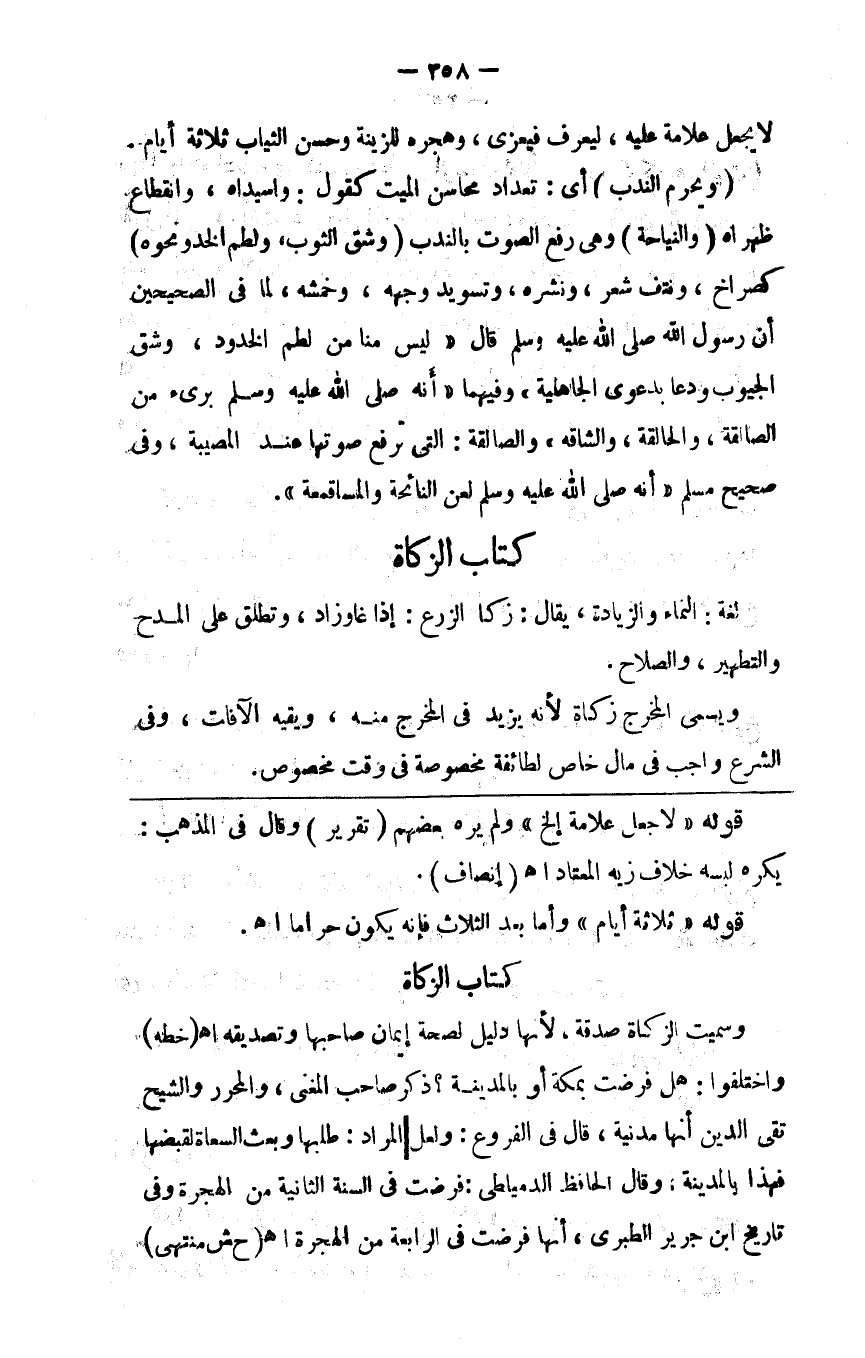 — ٣٥٨ —
لا يجعل علامة عليه ، ليعرف فيعزى ، وهجره للزينة وحسن الثياب ثلاثة أيام .
( ويحرم الندب ) أى : تعداد محاسن الميت كقول : واسيداه ، وانقطاع
ظهراه ( والنياحة ) وهى رفع الصوت بالندب ( وشق الثوب ، ولطم الخد ونحوه )
كصراخ ، ونتف شعر ، ونشره ، وتسويد وجهه ، وخمشه ، لما فى الصحيحين
أن رسول الله صلى الله عليه وسلم قال « ليس منا من لطم الخدود ، وشق
الجيوب ودعا بدعوى الجاهلية ، وفيهما « أنه صلى الله عليه وسلم برىء من
الصالقة ، والحالقة ، والشاقه ، والصالقة : التى ترفع صوتها عند المصيبة ، وفى
صحيح مسلم « أنه صلى الله عليه وسلم لعن النائحة والمساقمعة » .
كتاب الزكاة
لغة : النماء والزيادة ، يقال : زكا الزرع : إذا غاوزاد ، وتطلق على المدح
والتطهير ، والصلاح .
ويسمى المخرج زكاة لأنه يزيد فى المخرج منه ، ويقيه الآفات ، وفى
الشرع واجب فى مال خاص لطائفة مخصوصة فى وقت مخصوص .
قوله « لاجعل علامة إلخ » ولم يره بعضهم ( تقرير ) وقال فى المذهب :
يكره لبسه خلاف زيه المعتاد ا ه ( إنصاف ) .
قوله « ثلاثة أيام » وأما بعد الثلاث فإنه يكون حراما ا ه .
كتاب الزكاة
وسميت الزكاة صدقة ، لأنها دليل لصحة إيمان صاحبها وتصديقه ا ه ( خطه )
واختلفوا : هل فرضت بمكة أو بالمدينة ؟ ذكر صاحب المغنى ، والمحرر والشيح
تقى الدين أنها مدنية ، قال فى الفروع : ولعل المراد : طلبها وبعث السعاة لقبضها
فهذا بالمدينة ، وقال الحافظ الدمياطى : فرضت فى السنة الثانية من الهجرة وفى
تاريخ ابن جرير الطبرى ، أنها فرضت فى الرابعة من الهجرة ا ه ( ح ش منتهى )